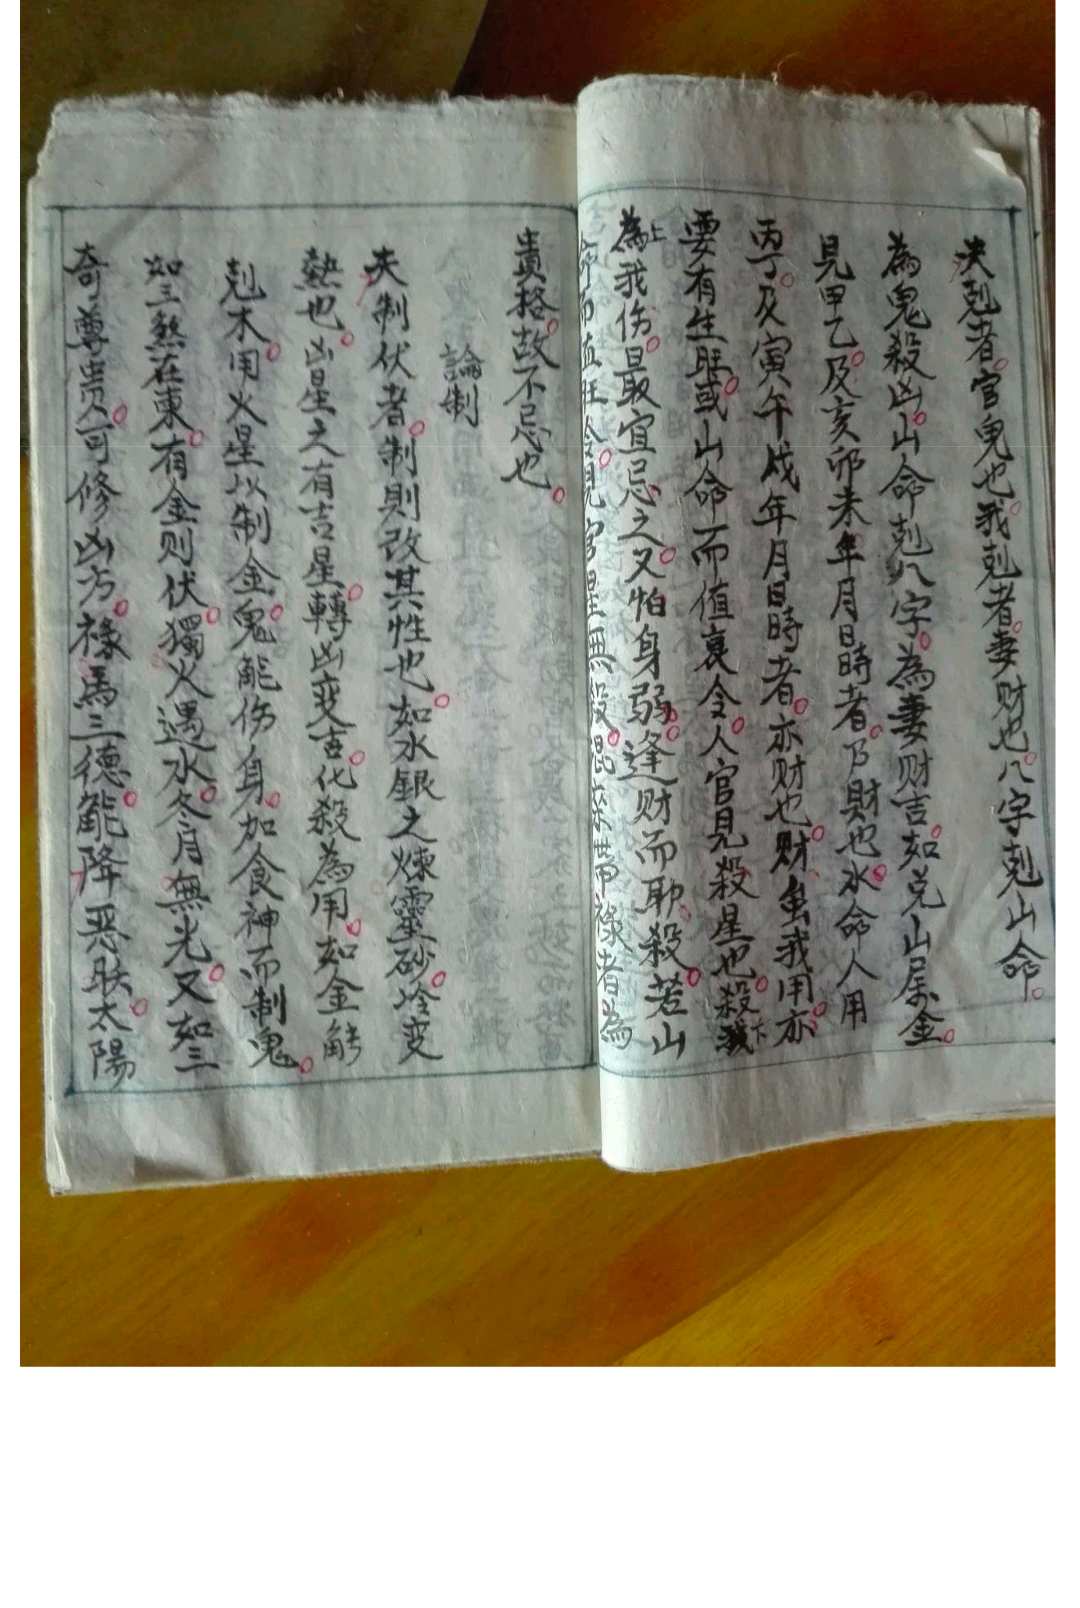 夫剋者。官鬼也。我剋者。妻财也。八字剋山命。
為鬼殺凶。山命剋八字。為妻财吉。如兑山属金。
見甲乙。及亥卯未年月日時者。乃財也。水命人用
丙丁。及寅午戌年月日時者。亦财也。财虽我用。亦
要有生旺。或山命而值衰令。人官見殺星也。殺
為我伤。最宜忌之。又怕身弱。逢财而助殺。若山
命而值旺令。見官星無殺混杂。带禄者為
貴格。故不忌也。
論制
夫制伏者。制則改其性也。如水銀之煉靈砂。冷变
熱也。凶星之有吉星。轉凶变吉。化殺為用。如金能
剋木。用火星以制金。鬼能伤身。加食神而制鬼。
如三煞在東。有金则伏。獨火遇水。冬月無光。又如三
奇尊贵。可修凶方。禄馬三德。能降恶朕。太陽